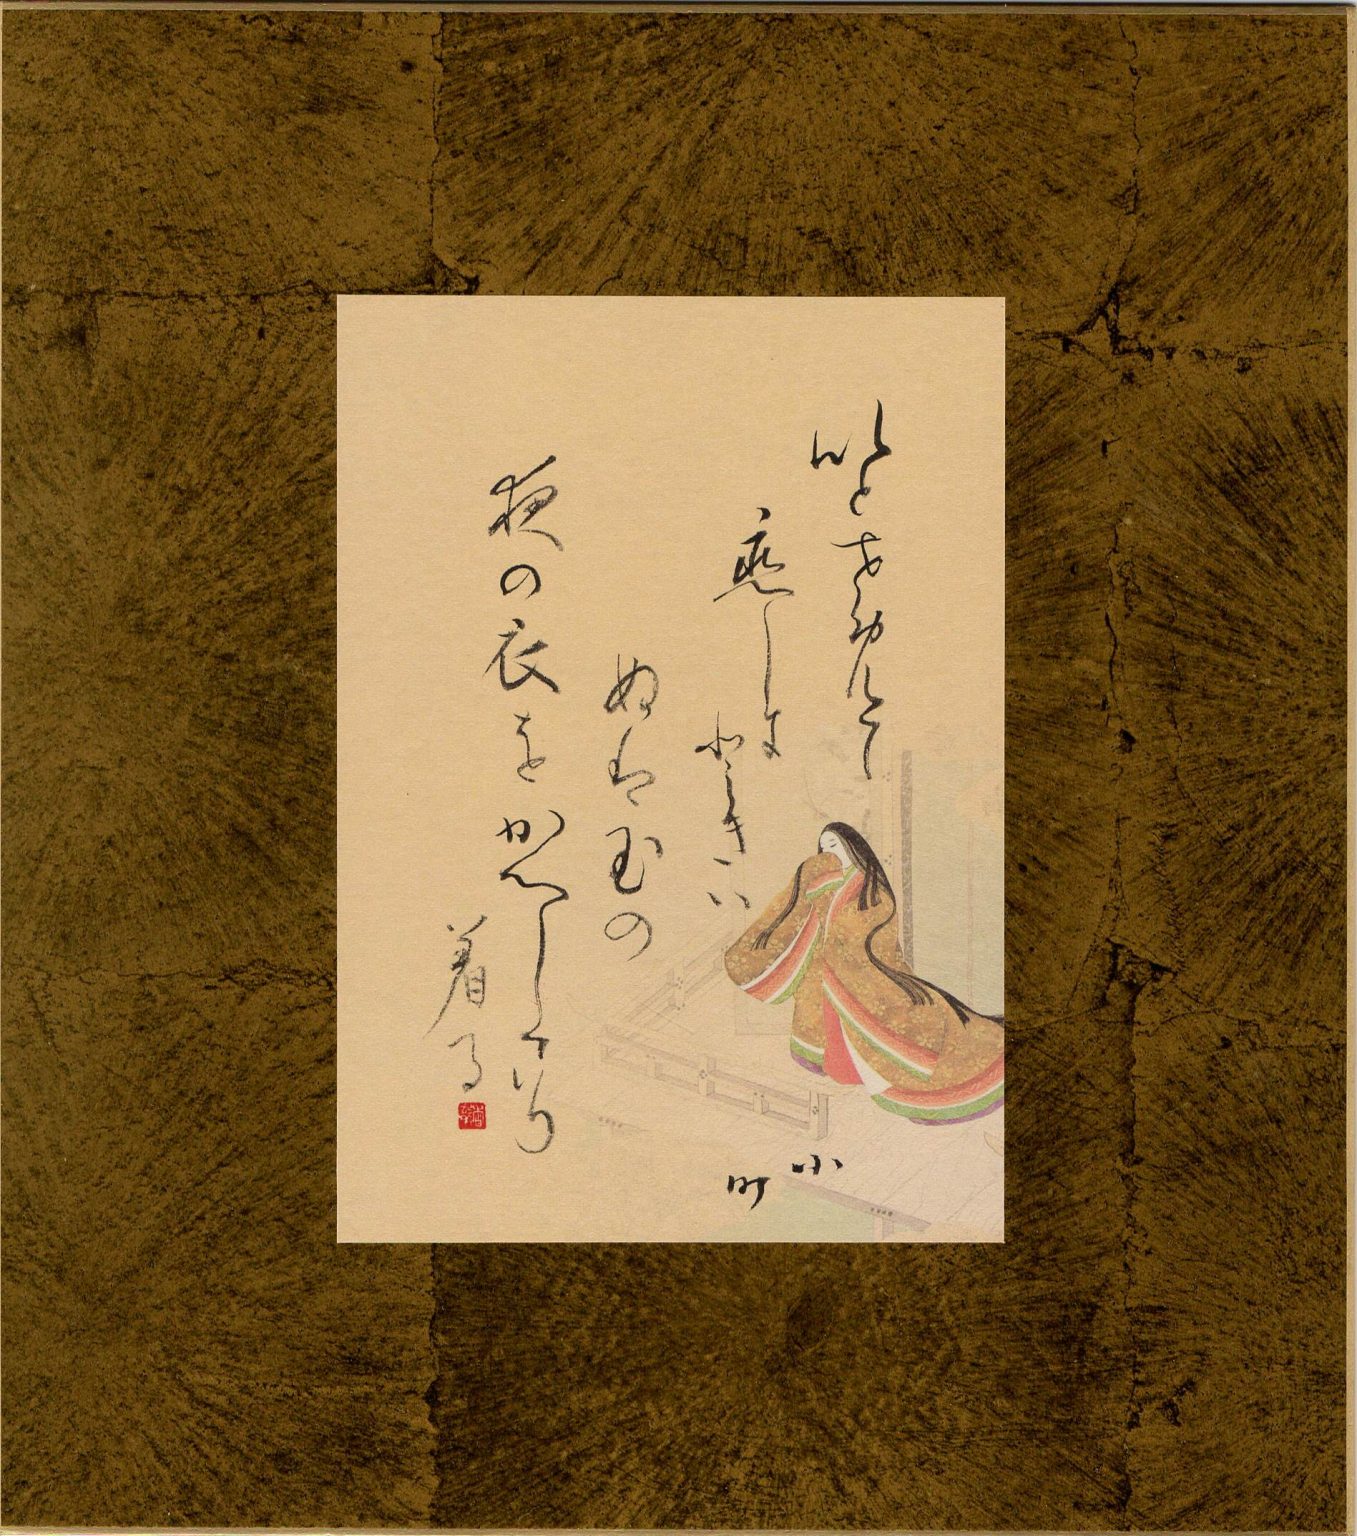 いとせめて
恋しき
ときハ
ぬは玉の
夜の衣をかへしてそ
着る
小町